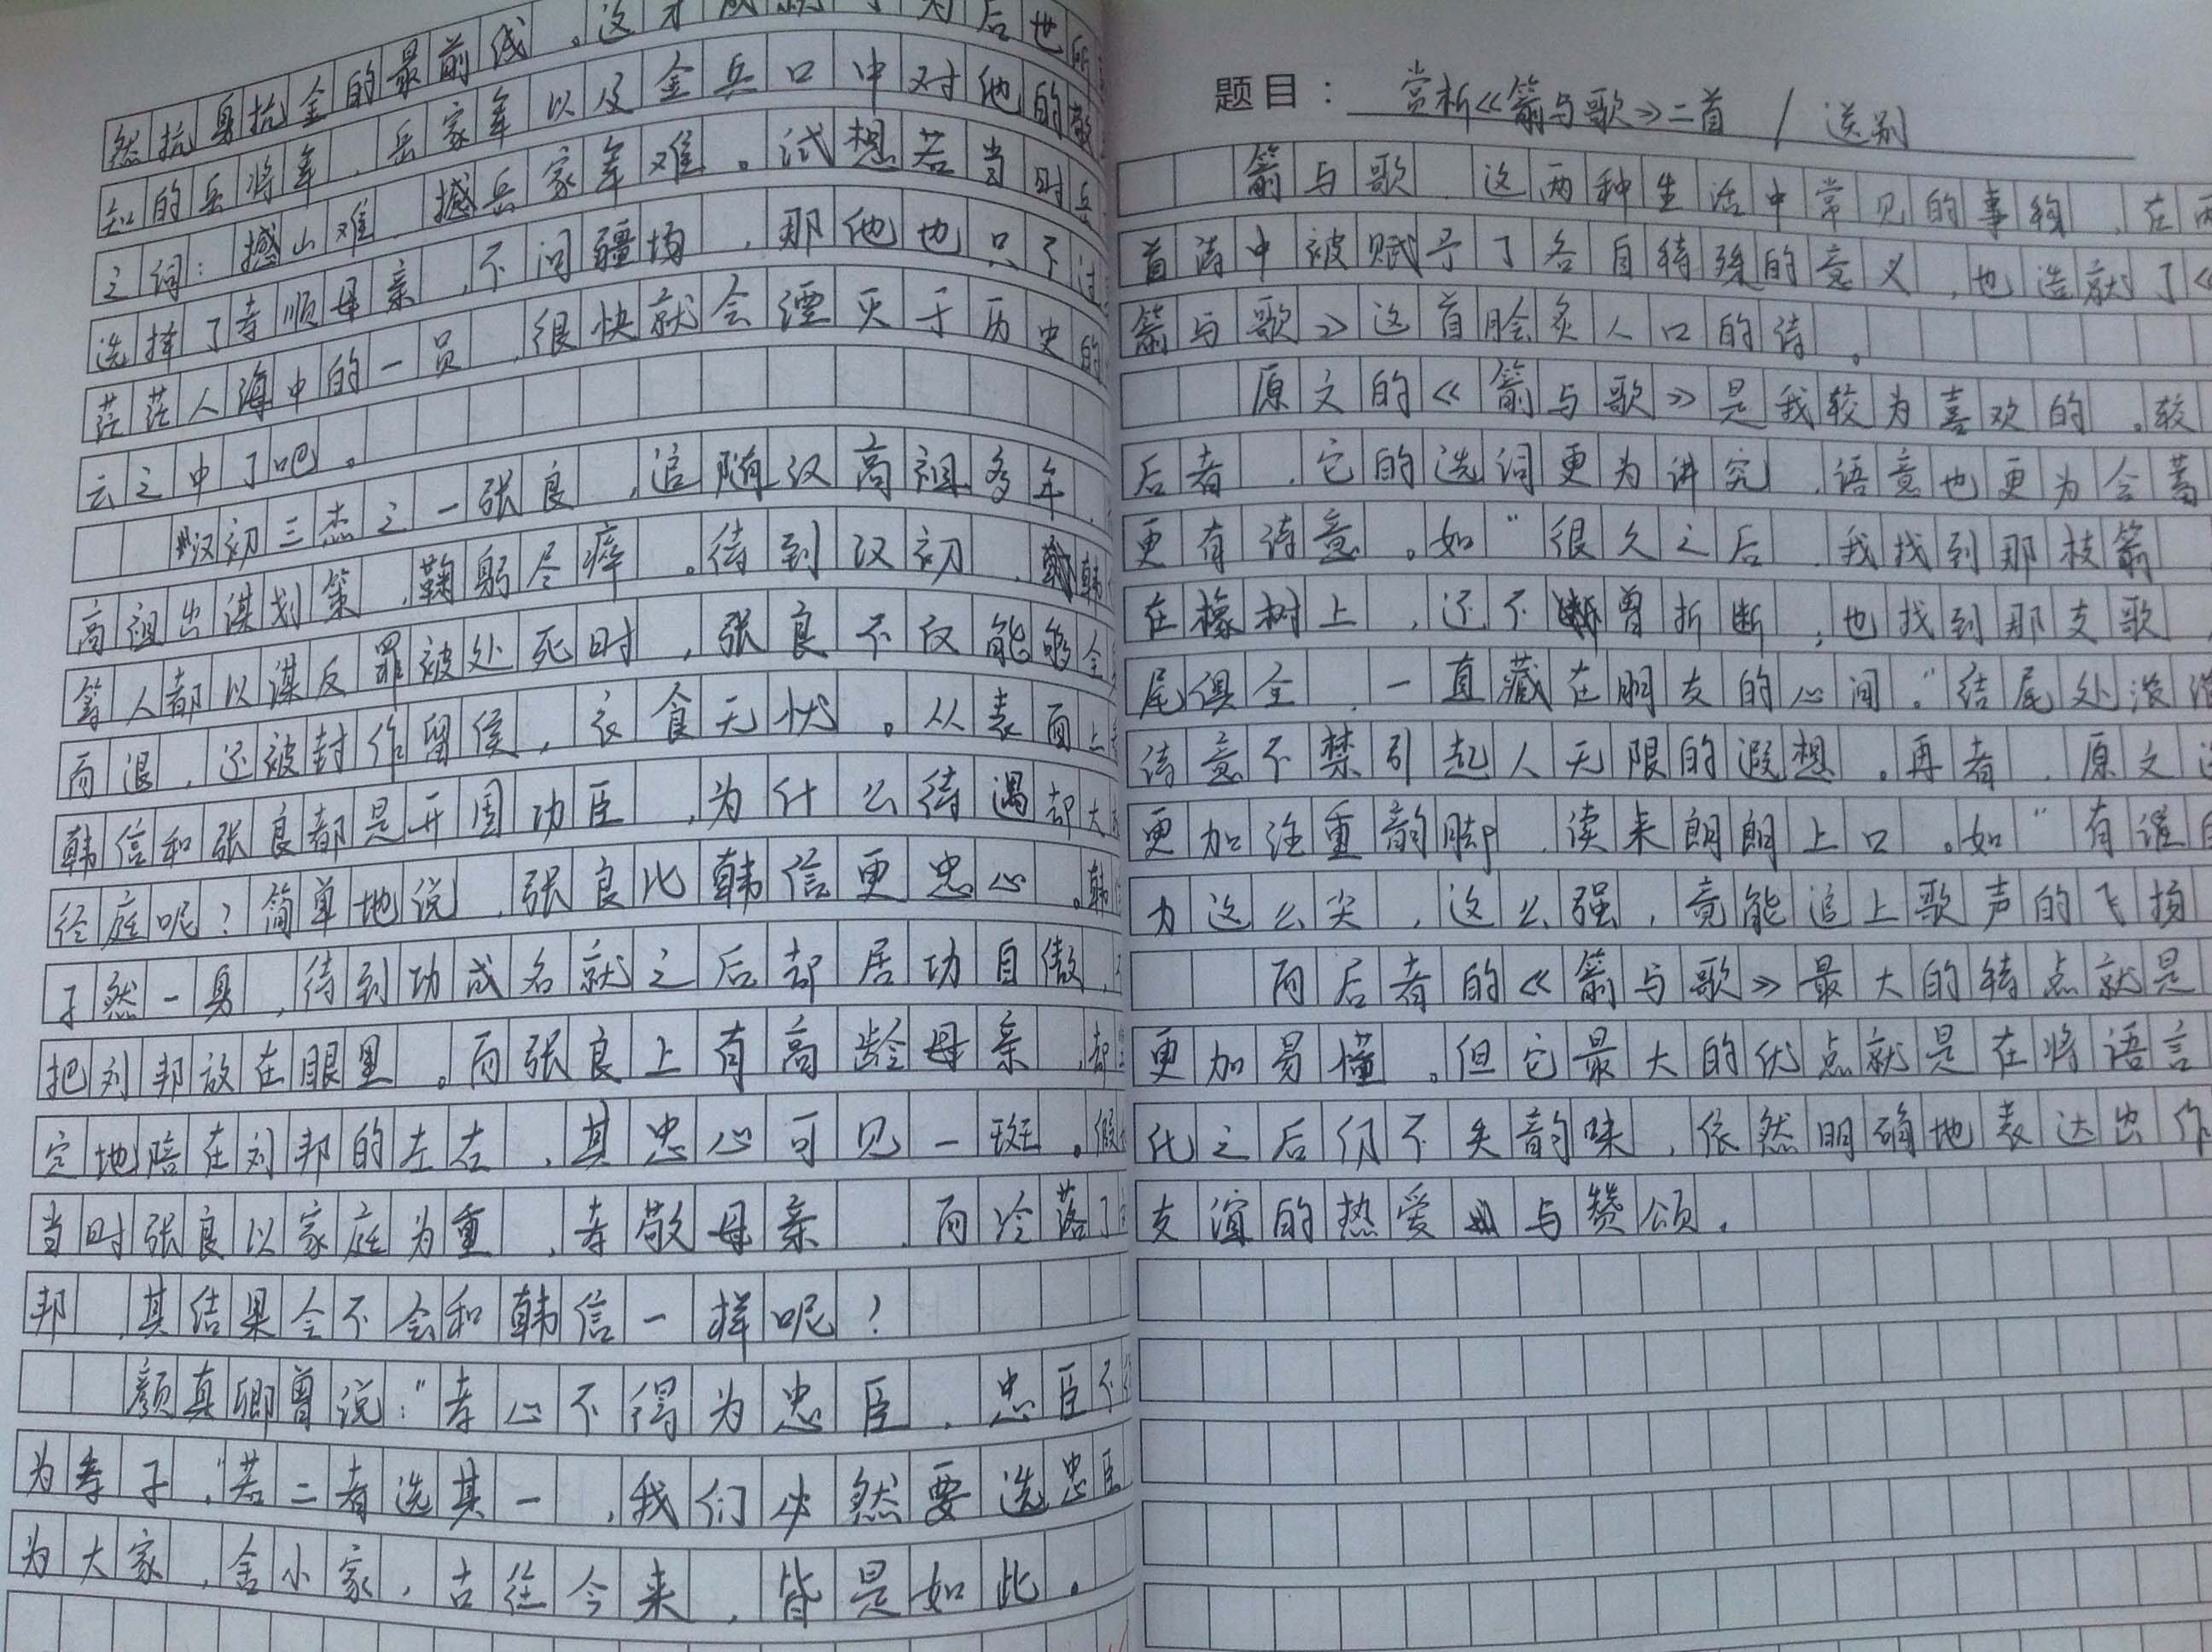 然抗身抗金的最前线。这才成就了为后世所
知的岳将军,岳家军以及金兵口中对他的敬
之词:撼山难,撼岳家军难。试想若当时岳
选择了孝顺母亲,不问疆场,那他也只不过
茫茫人海中的一员,很快就会湮灭于历史的
云之中了吧。
汉初三杰之一张良,追随汉高祖多年,
高祖出谋划策,鞠躬尽瘁。待到汉初,韩
等人都以谋反罪被处死时,张良不仅能够全
而退,还被封作留侯,衣食无忧。从表面上
韩信和张良都是开国功臣,为什么待遇却大
径庭呢?简单地说,张良比韩信更忠心。韩
孑然一身,待到功成名就之后却居功自傲,
把刘邦放在眼里。而张良上有高龄母亲,却
定地陪在刘邦的左右,其忠心可见一斑。假
当时张良以家庭为重,孝敬母亲,而冷落了
邦,其结果会不会和韩信一样呢?
颜真卿曾说:“孝心不得为忠臣,忠臣不
为孝子,”若二者选其一,我们必然要选忠臣
为大家,舍小家,古往今来,皆是如此。
题目:赏析《箭与歌》二首 / 送别
箭与歌,这两种生活中常见的事物,在两
首诗中被赋予了各自特殊的意义,也造就了《
箭与歌》这首脍炙人口的诗。
原文的《箭与歌》是我较为喜欢的。较
后者,它的选词更为讲究,语意也更为含蓄
更有诗意。如“很久之后,我找到那枝箭
在橡树上,还不曾折断,也找到那支歌,
尾俱全,一直藏在朋友的心间。”结尾处浓浓
诗意不禁引起人无限的遐想。再者,原文
更加注重韵脚,读来朗朗上口。如“有谁
力这么尖,这么强,竟能追上歌声的飞扬
而后者的《箭与歌》最大的特点就是
更加易懂。但它最大的优点就是在将语言
化之后仍不失韵味,依然明确地表达出作
友谊的热爱与赞颂。